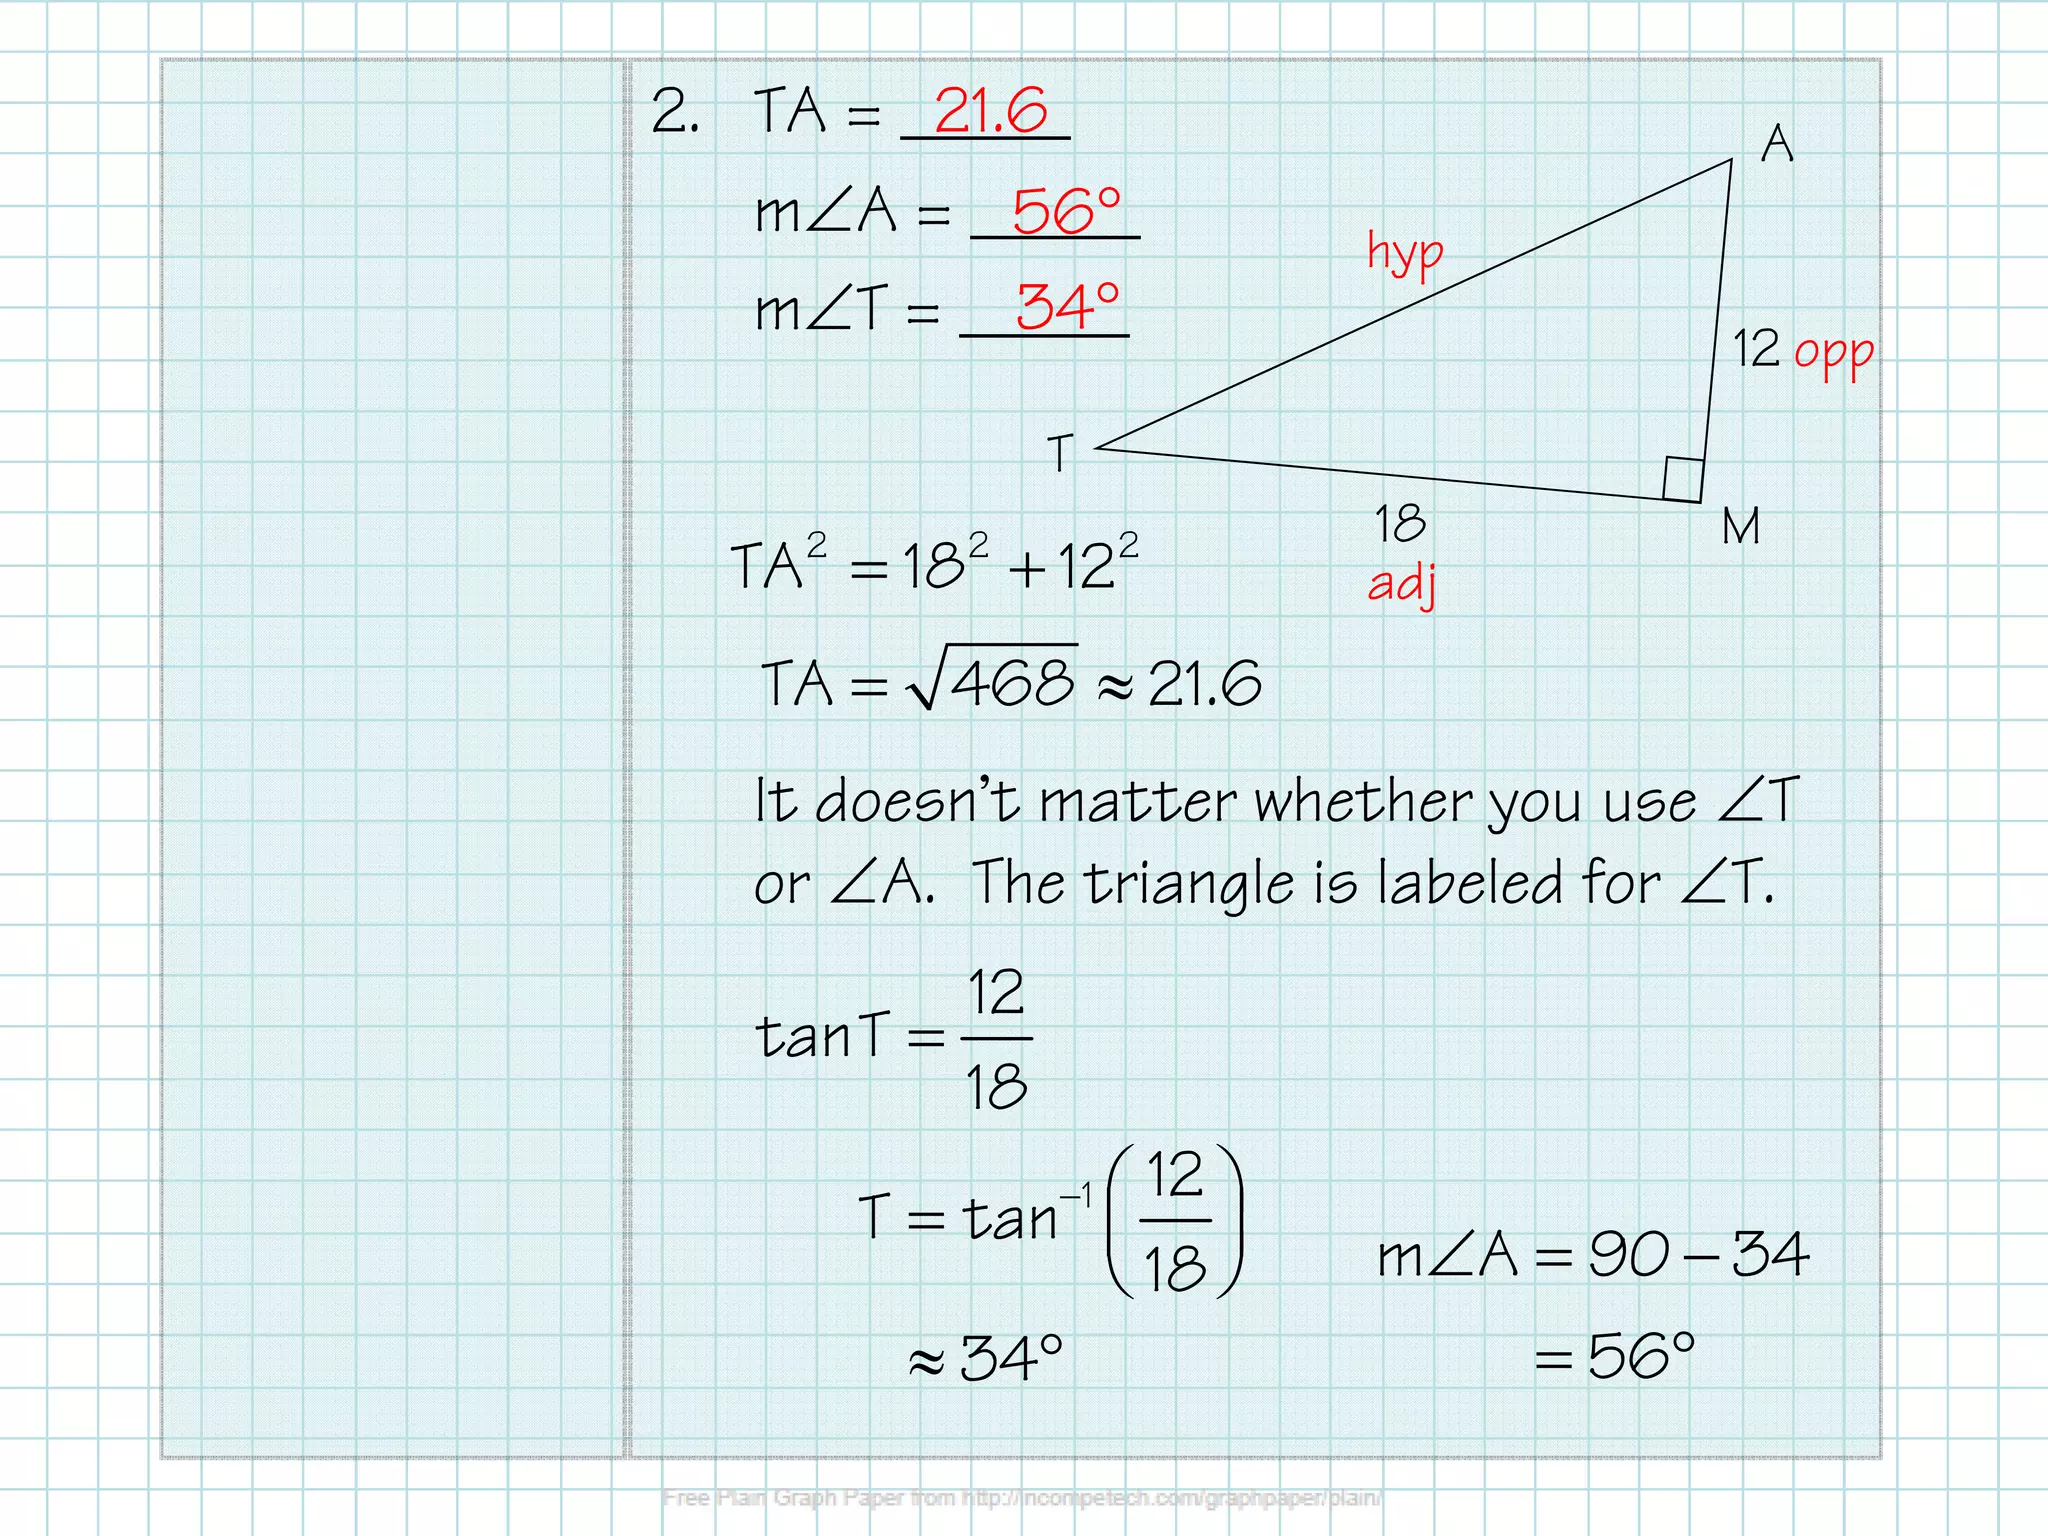 2. TA = 21.6
m∠A = 56°
m∠T = 34°
A
hyp
12 opp
T
18
adj
M
TA² = 18² + 12²
TA = √468 ≈ 21.6
It doesn’t matter whether you use ∠T
or ∠A. The triangle is labeled for ∠T.
tanT = 12/18
T = tan⁻¹(12/18)
≈ 34°
m∠A = 90 − 34
= 56°
Free Plain Graph Paper from http://incompetech.com/graphpaper/plain/